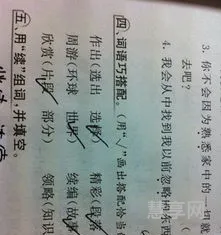 3. 你不会因为熟悉家中的一切就
去吧？
4. 我会从中找到我以前忽略的东西
四、词语巧搭配。(用“√”画出搭配恰当
作出(选出 选择) 精彩(段落
周游(环球 世界) 续编(故事
欣赏(片段 部分) 领略(知识
五、用“续”组词，并填空。
慧享网